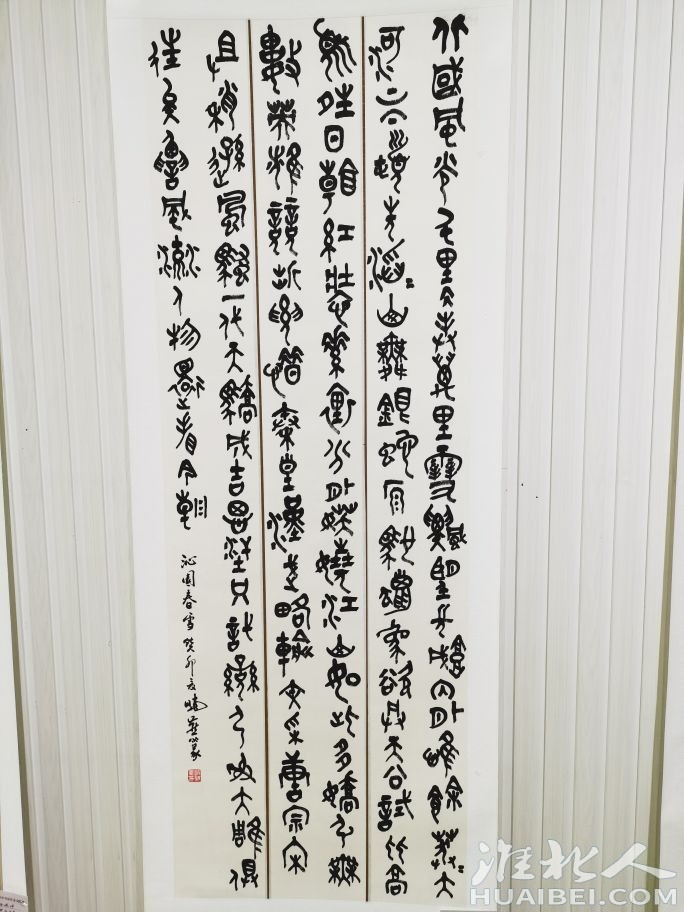 北國風光千里冰封萬里雪飄望長城內外惟餘莽〻大
河上下頓失滔〻山舞銀蛇原馳蠟象欲與天公試比高
須晴日看紅裝素裹分外妖嬈江山如此多嬌引無
數英雄競折腰惜秦皇漢武略輸文采唐宗宋
祖稍遜風騷一代天驕成吉思汗只識彎弓射大雕俱
往矣數風流人物還看今朝
沁園春雪癸卯夏曉篆
淮北人
HUAIBEI.COM